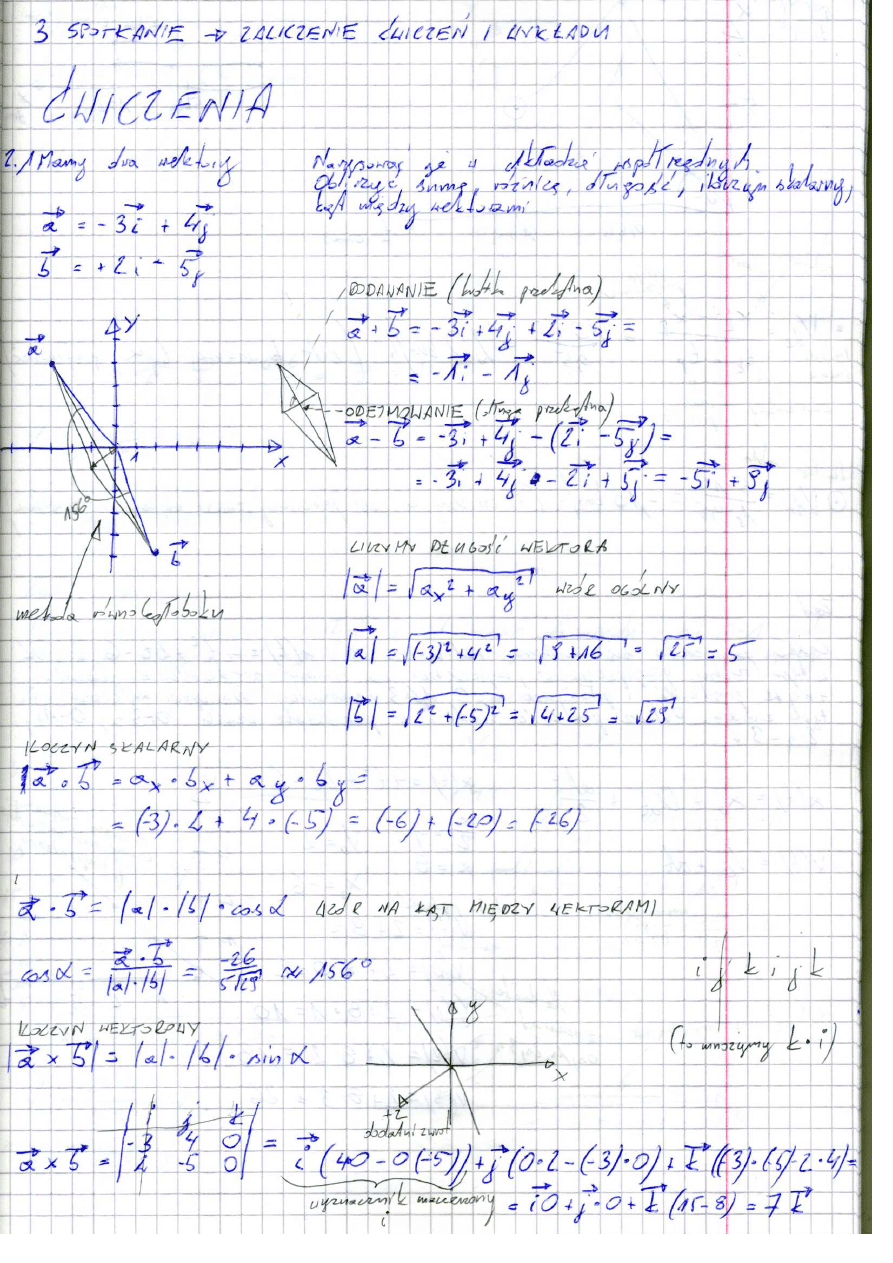 3 SPOTKANIE → ZALICZENIE ĆWICZEŃ I WYKŁADU
ĆWICZENIA
2.1 Mamy dwa wektory
Narysować je w układzie współrzędnych
Obliczyć sumę, różnicę, długość, iloczyn skalarny,
kąt między wektorami
a⃗ = -3i⃗ + 4j⃗
b⃗ = +2i - 5j⃗
DODAWANIE (krótka przekątna)
a⃗ + b⃗ = -3i⃗ + 4j⃗ + 2i⃗ - 5j⃗ =
= -1i⃗ - 1j⃗
ODEJMOWANIE (długa przekątna)
a⃗ - b⃗ = -3i⃗ + 4j⃗ - (2i⃗ - 5j⃗) =
= -3i⃗ + 4j⃗ - 2i⃗ + 5j⃗ = -5i⃗ + 9j⃗
a⃗
Y
X
1
156°
b⃗
metoda równoległoboku
LICZYMY DŁUGOŚĆ WEKTORA
|a⃗| = √(ax² + ay²) WZÓR OGÓLNY
|a⃗| = √((-3)² + 4²) = √(9 + 16) = √25 = 5
|b⃗| = √(2² + (-5)²) = √(4 + 25) = √29
ILOCZYN SKALARNY
a⃗ ∘ b⃗ = ax • bx + ay • by =
= (-3) · 2 + 4 · (-5) = (-6) + (-20) = (-26)
a⃗ · b⃗ = |a| · |b| · cos α WZÓR NA KĄT MIĘDZY WEKTORAMI
cos α = a⃗ · b⃗ / |a| · |b| = -26 / 5√29 ≈ 156°
i j k i j k
(to mnożymy k · i)
ILOCZYN WEKTOROWY
|a⃗ × b⃗| = |a| · |b| · sin α
y
x
+z
dodatni zwrot
a⃗ × b⃗ = | i j k
-3 4 0
2 -5 0 | = i⃗ (4·0 - 0(-5)) + j⃗ (0·2 - (-3)·0) + k⃗ ((-3)·(-5) - 2·4) =
wyznacznik
i
= i⃗ 0 + j⃗ · 0 + k⃗ (15 - 8) = 7 k⃗